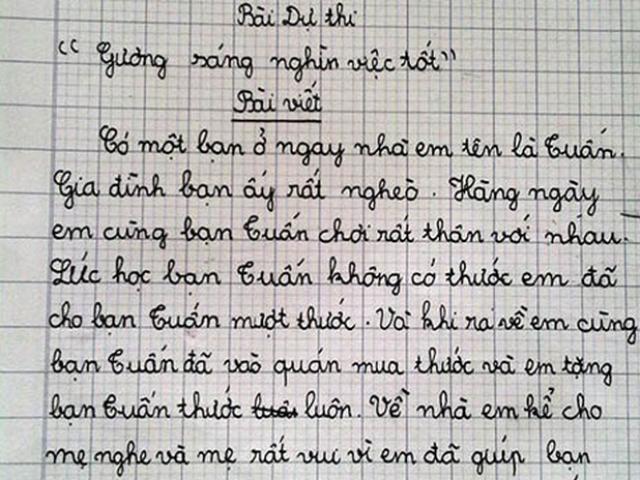 Bài Dự thi
"Gương sáng nghìn việc tốt"
Bài viết
Có một bạn ở ngay nhà em tên là Tuấn.
Gia đình bạn ấy rất nghèo. Hàng ngày
em cùng bạn Tuấn chơi rất thân với nhau.
Lúc học bạn Tuấn không có thước em đã
cho bạn Tuấn mượt thước. Và khi ra về em cùng
bạn Tuấn đã vào quán mua thước và em tặng
bạn Tuấn thước luôn. Về nhà em kể cho
mẹ nghe và mẹ rất vui vì em đã giúp bạn